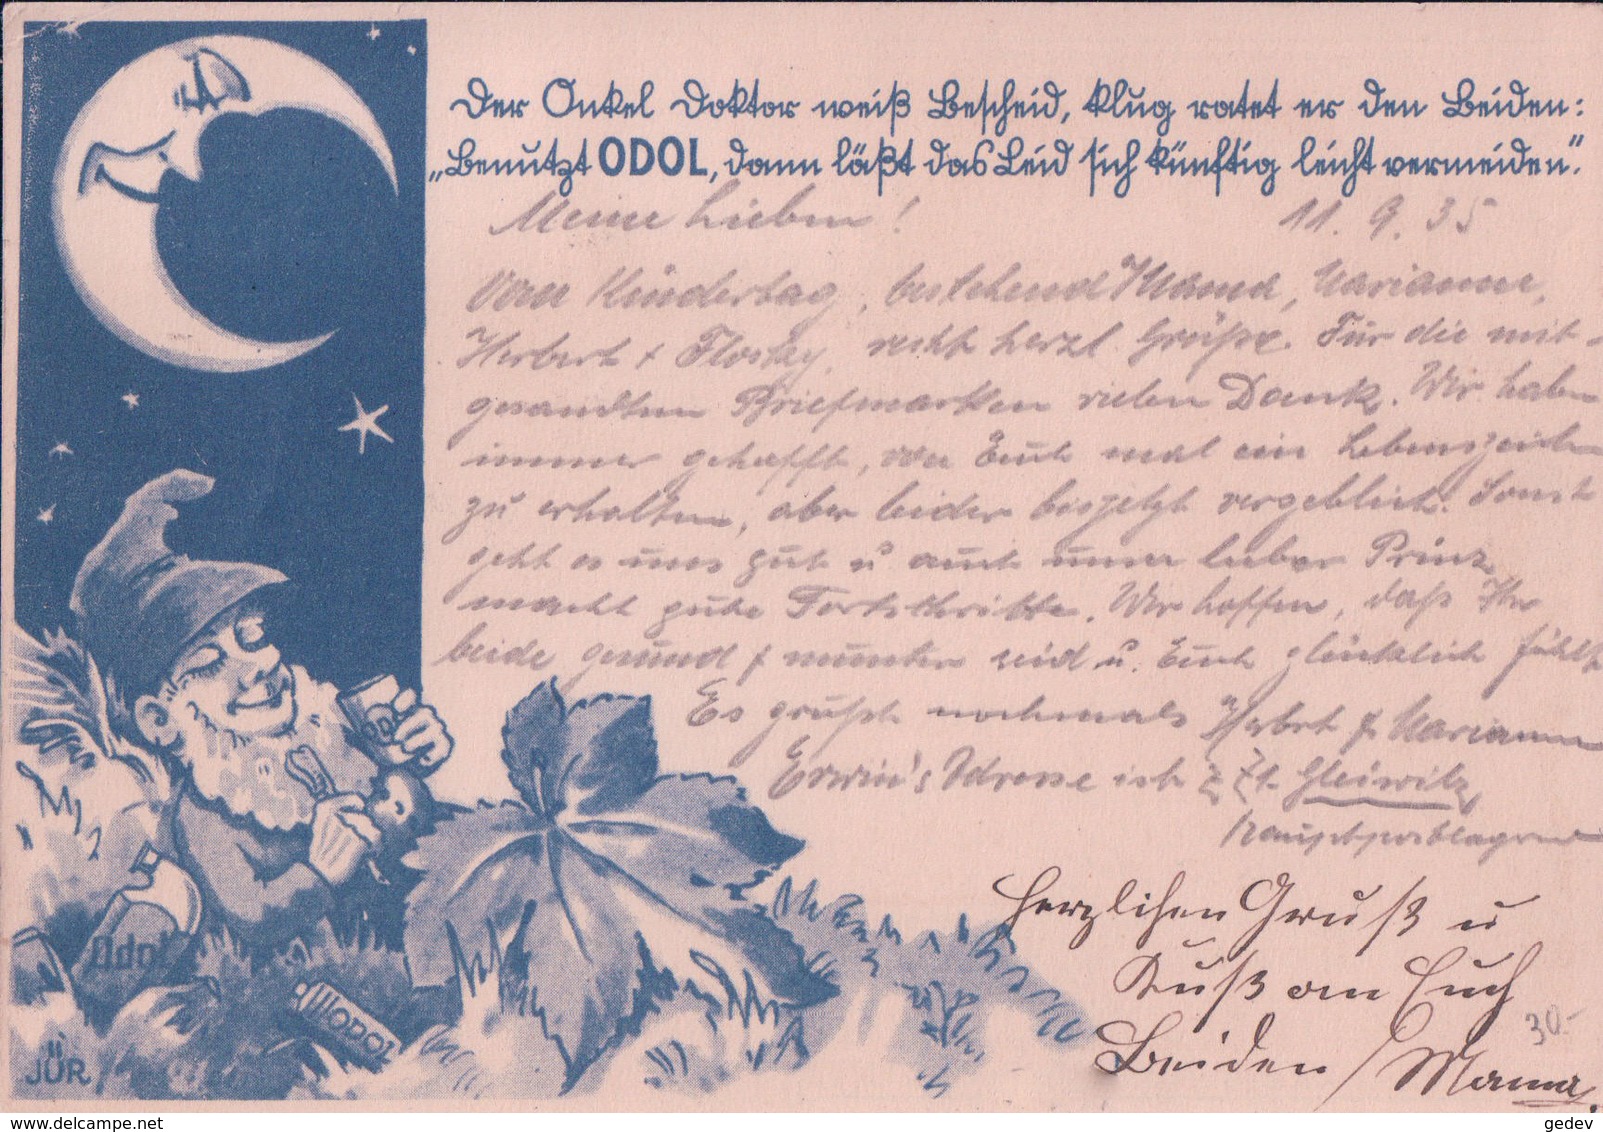 Der Onkel Doktor weiß Bescheid, klug ratet er den Beiden:
„Benutzt ODOL, dann läßt das Leid sich künftig leicht vermeiden."
Meine Lieben! 11. 9. 35
Vom Kindertag, bestehend Mama, Marianne,
Herbert + recht herzl. Grüße. Für die mit-
gesandten Briefmarken vielen Dank. Wir haben
immer gehofft, von Euch mal ein Lebenszeichen
zu erhalten, aber leider bisjetzt vergeblich. Sonst
geht es uns gut u auch unser lieber Prinz
macht gute Fortschritte. Wir hoffen, daß Ihr
beide gesund + munter seid u. Euch glücklich fühlt
Es grüßt nochmals Herbert + Marianne
Erwin's Adresse ist z. Zt. Gleiwitz
hauptpostlagernd
Herzlichen Gruß u
Kuß an Euch
Beiden / Mama.
30.-
Odol
ODOL
JÜR
www.delcampe.net
gedev